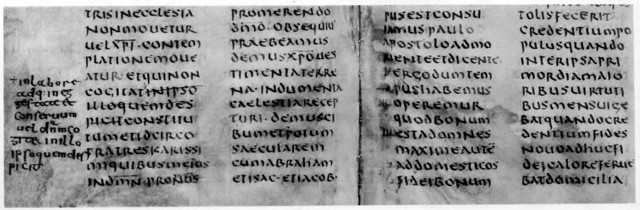 TRISINECCLESIA
NONMOUETUR
UELXPI·CONTEM
PLATIONEMOUE
ATUR·ETQUINON
COGITATINIPSO
ILLOQUEMDES
PICITCONSTITU
TUMETIDCIRCO
FRATRESKARISSI
MIQUIBUSMEIOS
inlabore
uel
inillo
ipsoquemdes
picit
PROMERENDO
DNO·OBSEQUIU
PRAEBEAMUS
DEMUSXPOUES
TIMENTATERRE
NA·INDUMENTA
CAELESTIARECEP
TURI·DEMUSCI
BUMETPOTUM
SAECULAREM
CUMABRAHAM
ETISAC·ETIACOB·
PUSESTCONSU
IAMUSPAULO
APOSTOLOADMO
NENTEETDICENTE
ERGODUMTEM
PUSHABEMUS
OPEREMUR
QUODBONUM
ESTADOMNES
MAXIMEAUTE
ADDOMESTICOS
FIDEIBONUM
TOLISFECERIT
CREDENTIUMPO
PULUSQUANDO
INTERIPSAPRI
MORDIAMAIO
RIBUSUIRTUTI
BUSMENSUIGE
BATQUANDOCRE
DENTIUMFIDES
NOUOADHUCFI
DEICALOREFERUE
BATDOMICILIA